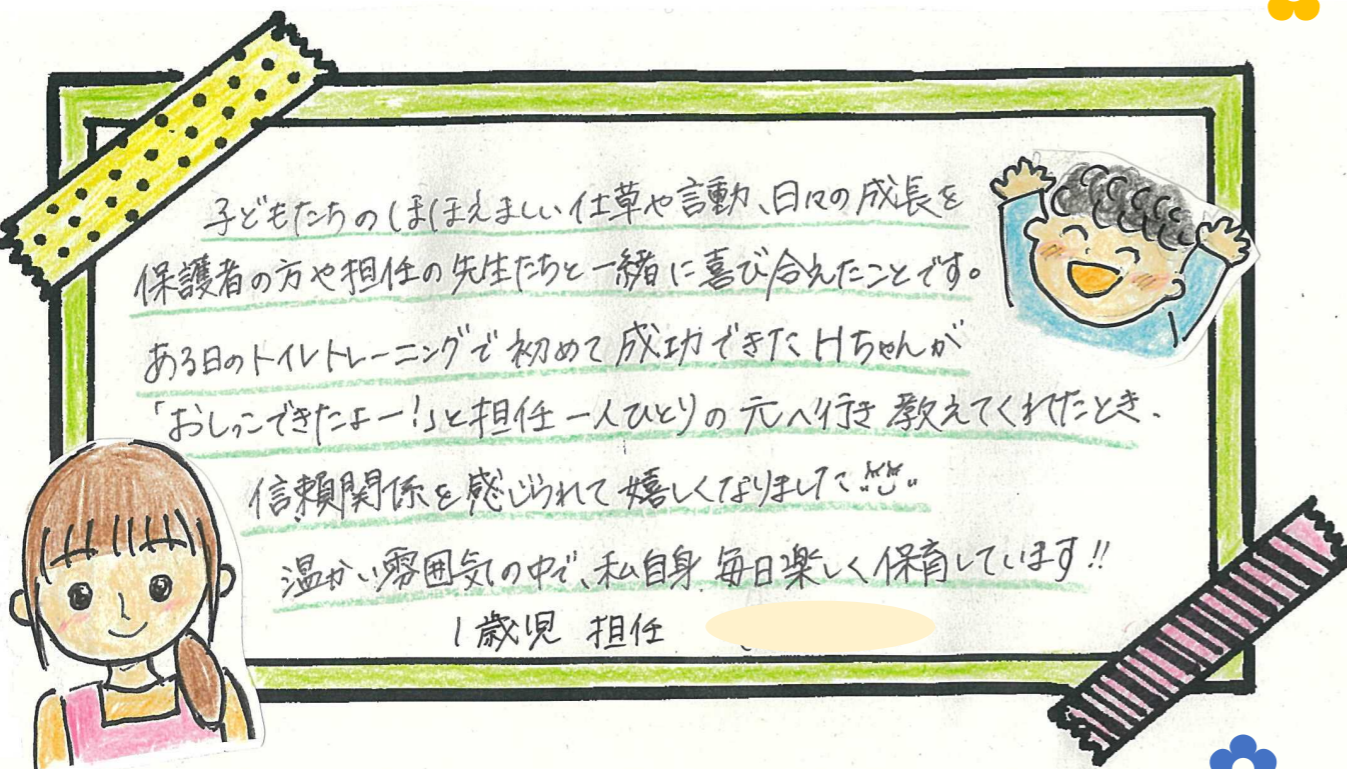 子どもたちのほほえましい仕草や言動、日々の成長を
保護者の方や担任の先生たちと一緒に喜び合えたことです。
ある日のトイレトレーニングで初めて成功できたHちゃんが
「おしっこできたよー!」と担任一人ひとりの元へ行き教えてくれたとき、
信頼関係を感じられて嬉しくなりました
温かい雰囲気の中で、私自身毎日楽しく保育しています!!
1歳児 担任